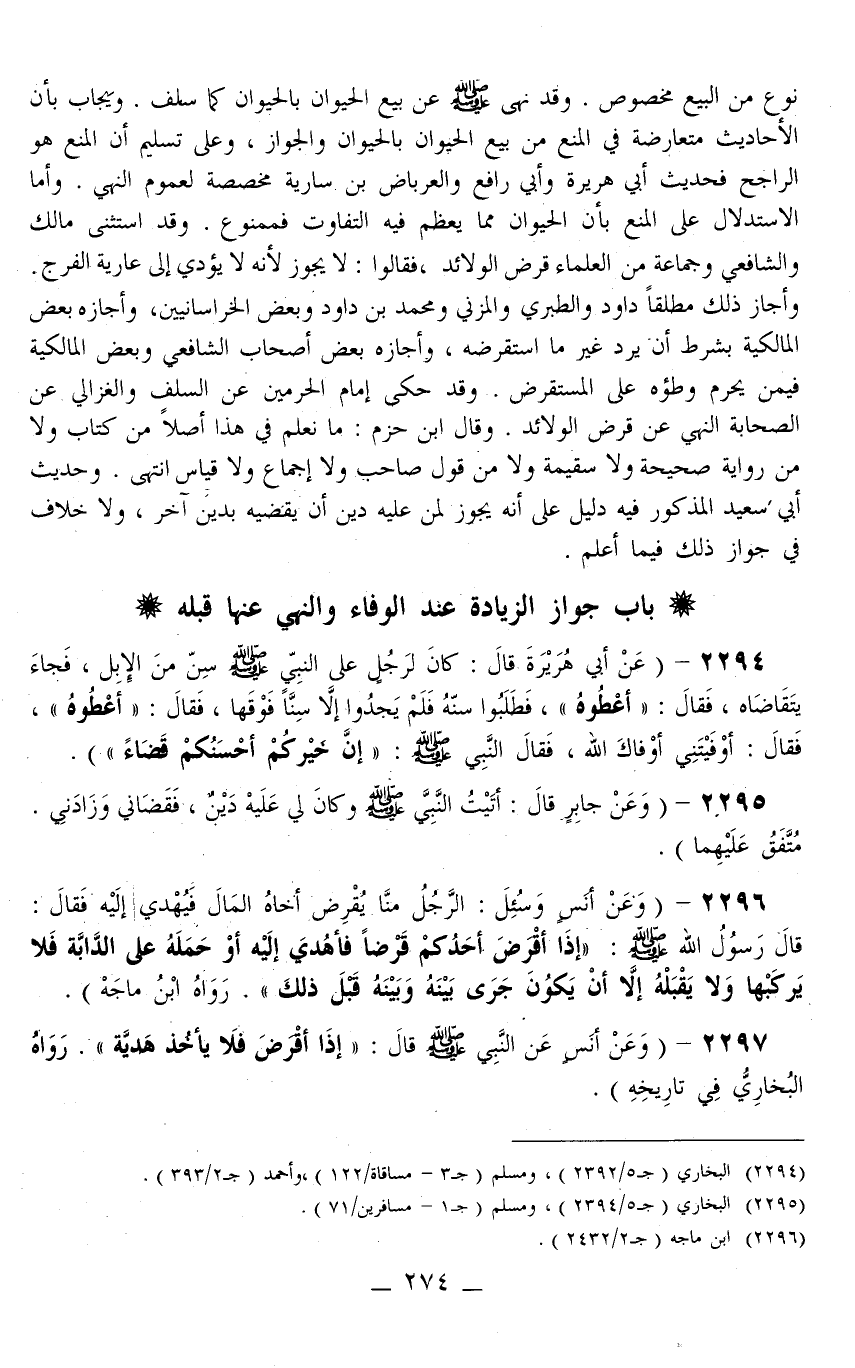 نوع من البيع مخصوص . وقد نهى ﷺ عن بيع الحيوان بالحيوان كما سلف . ويجاب بأن
الأحاديث متعارضة في المنع من بيع الحيوان بالحيوان والجواز ، وعلى تسليم أن المنع هو
الراجح فحديث أبي هريرة وأبي رافع والعرباض بن سارية مخصصة لعموم النهي . وأما
الاستدلال على المنع بأن الحيوان مما يعظم فيه التفاوت فممنوع . وقد استثنى مالك
والشافعي وجماعة من العلماء قرض الولائد ،فقالوا : لا يجوز لأنه لا يؤدي إلى عارية الفرج .
وأجاز ذلك مطلقاً داود والطبري والمزني ومحمد بن داود وبعض الخراسانيين، وأجازه بعض
المالكية بشرط أن يرد غير ما استقرضه ، وأجازه بعض أصحاب الشافعي وبعض المالكية
فيمن يحرم وطؤه على المستقرض . وقد حكى إمام الحرمين عن السلف والغزالي عن
الصحابة النهي عن قرض الولائد . وقال ابن حزم : ما نعلم في هذا أصلاً من كتاب ولا
من رواية صحيحة ولا سقيمة ولا من قول صاحب ولا إجماع ولا قياس انتهى . وحديث
أبي سعيد المذكور فيه دليل على أنه يجوز لمن عليه دين أن يقضيه بدين آخر ، ولا خلاف
في جواز ذلك فيما أعلم .
باب جواز الزيادة عند الوفاء والنهي عنها قبله
٢٢٩٤ – ( عَنْ أبي هُرَيْرَةَ قالَ : كانَ لرَجُلٍ على النبيّ ﷺ سِنّ منَ الإِبل ، فَجاءَ
يتَقَاضَاه ، فَقالَ : « أعْطُوهُ » ، فَطَلَبُوا سنّهُ فَلَمْ يَجدُوا إلَّا سِنًّا فَوْقَها ، فَقالَ : « أعْطُوهُ » ،
فَقالَ : أوْفَيْتَنِي أوْفاكَ الله ، فَقالَ النَّبي ﷺ : « إنَّ خَيْركُمْ أحْسَنُكمْ قَضَاءً » ) .
٢٢٩٥ – ( وَعَنْ جابِرٍ قالَ : أتَيْتُ النَّبيَّ ﷺ وكانَ لي عَلَيهْ دَيْنٌ ، فَقَضَاني وَزَادَنِي .
مُتَّفَقُ عَلَيْهِما ) .
٢٢٩٦ – ( وَعَنْ أنَسٍ وَسُئِلَ : الرَّجُلُ منَّا يُقْرِض أخاهُ المَالَ فَيُهْدي إلَيْه فَقالَ :
قالَ رَسوُلُ الله ﷺ : «إذَا أقْرَضَ أحَدُكمْ قَرْضاً فأهْدي إلَيْه أوْ حَمَلَهُ على الدَّابَّة فَلا
يَركَبْها وَلا يَقْبَلْهُ إلَّا أنْ يَكوُنَ جَرَى بَيْنَهُ وَبَيْنَهُ قَبْلَ ذلكَ» . رَوَاهُ ابْنُ ماجَهْ ) .
٢٢٩٧ – ( وَعَنْ أنَسٍ عَن النَّبي ﷺ قالَ : « إذَا أقْرَضَ فَلَا يأخُذ هَديَّة » . رَوَاهُ
البُخارِيُّ فِي تارِيخِهِ ) .
(٢٢٩٤) البخاري ( جـ٢٣٩٢/٥ ) ، ومسلم ( جـ٣ – مساقاة/١٢٢ ) ،وأحمد ( جـ٣٩٣/٢ ) .
(٢٢٩٥) البخاري ( جـ٢٣٩٤/٥ ) ، ومسلم ( جـ١ – مسافرين/٧١ ) .
(٢٢٩٦) ابن ماجه ( جـ٢٤٣٢/٢ ) .
– ٢٧٤ –